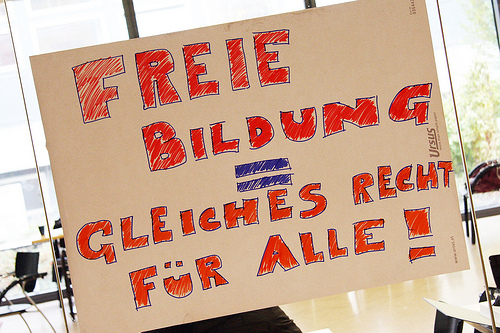 FREIE
BILDUNG
=
GLEICHES RECHT
FÜR ALLE!
Ursus